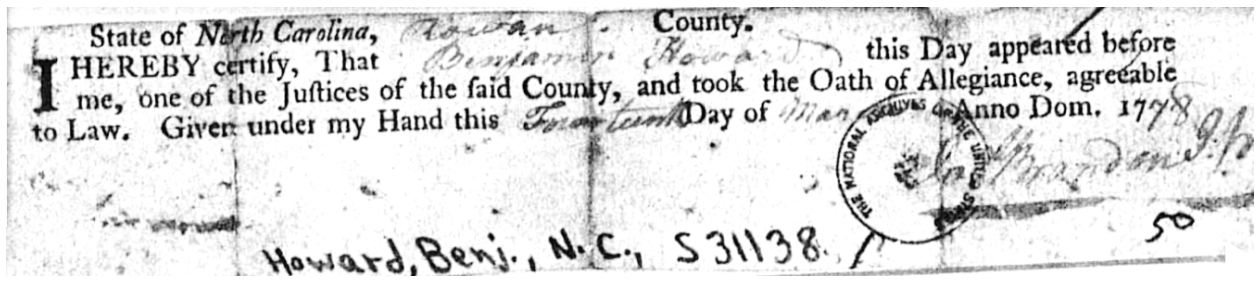 State of North Carolina, Rowan County.
I HEREBY certify, That Benjamin Howard this Day appeared before
me, one of the Juſtices of the ſaid County, and took the Oath of Allegiance, agreeable
to Law. Given under my Hand this Fourteenth Day of Anno Dom. 1778
THE NATIONAL ARCHIVES OF THE UNITED STATES
Brandon J.P.
Howard, Benj., N.C., S 31138.
50